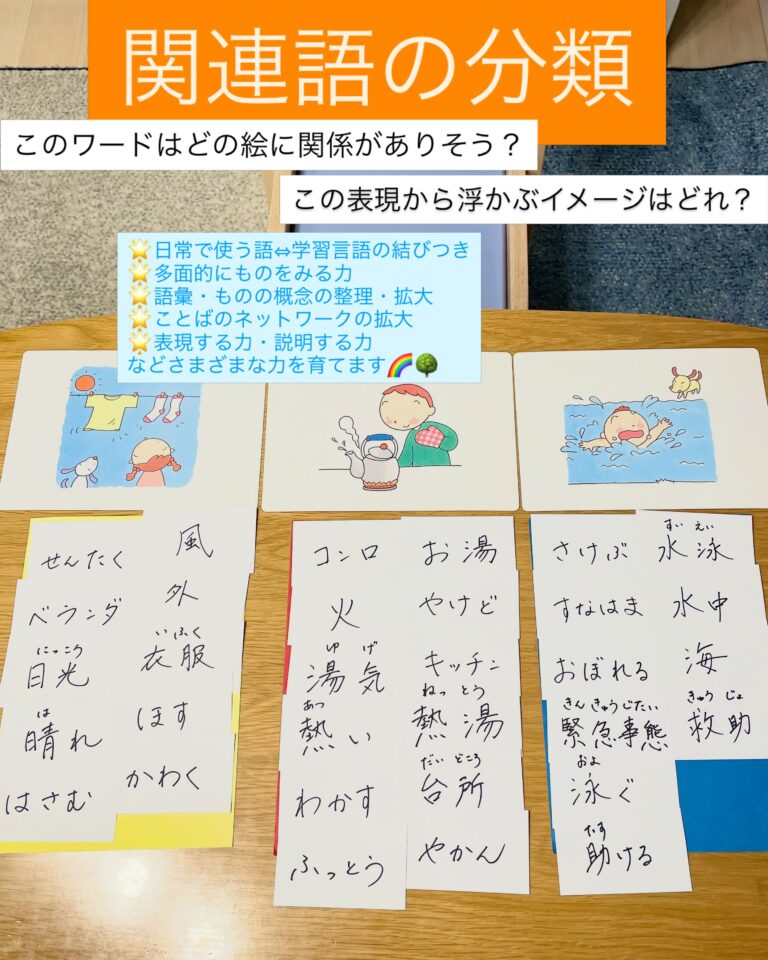 関連語の分類
このワードはどの絵に関係がありそう？
この表現から浮かぶイメージはどれ？
🌟日常で使う語⇔学習言語の結びつき
🌟多面的にものをみる力
🌟語彙・ものの概念の整理・拡大
🌟ことばのネットワークの拡大
🌟表現する力・説明する力
などさまざまな力を育てます🌈🌳
せんたく
ベランダ
にっこう
日光
は
晴れ
はさむ
風
外
いふく
衣服
ほす
かわく
コンロ
火
ゆげ
湯気
あつ
熱い
わかす
ふっとう
お湯
やけど
キッチン
ねっとう
熱湯
だいどころ
台所
やかん
さけぶ
すなはま
おぼれる
きんきゅうじたい
緊急事態
およ
泳ぐ
たす
助ける
すいえい
水泳
水中
海
きゅうじょ
救助